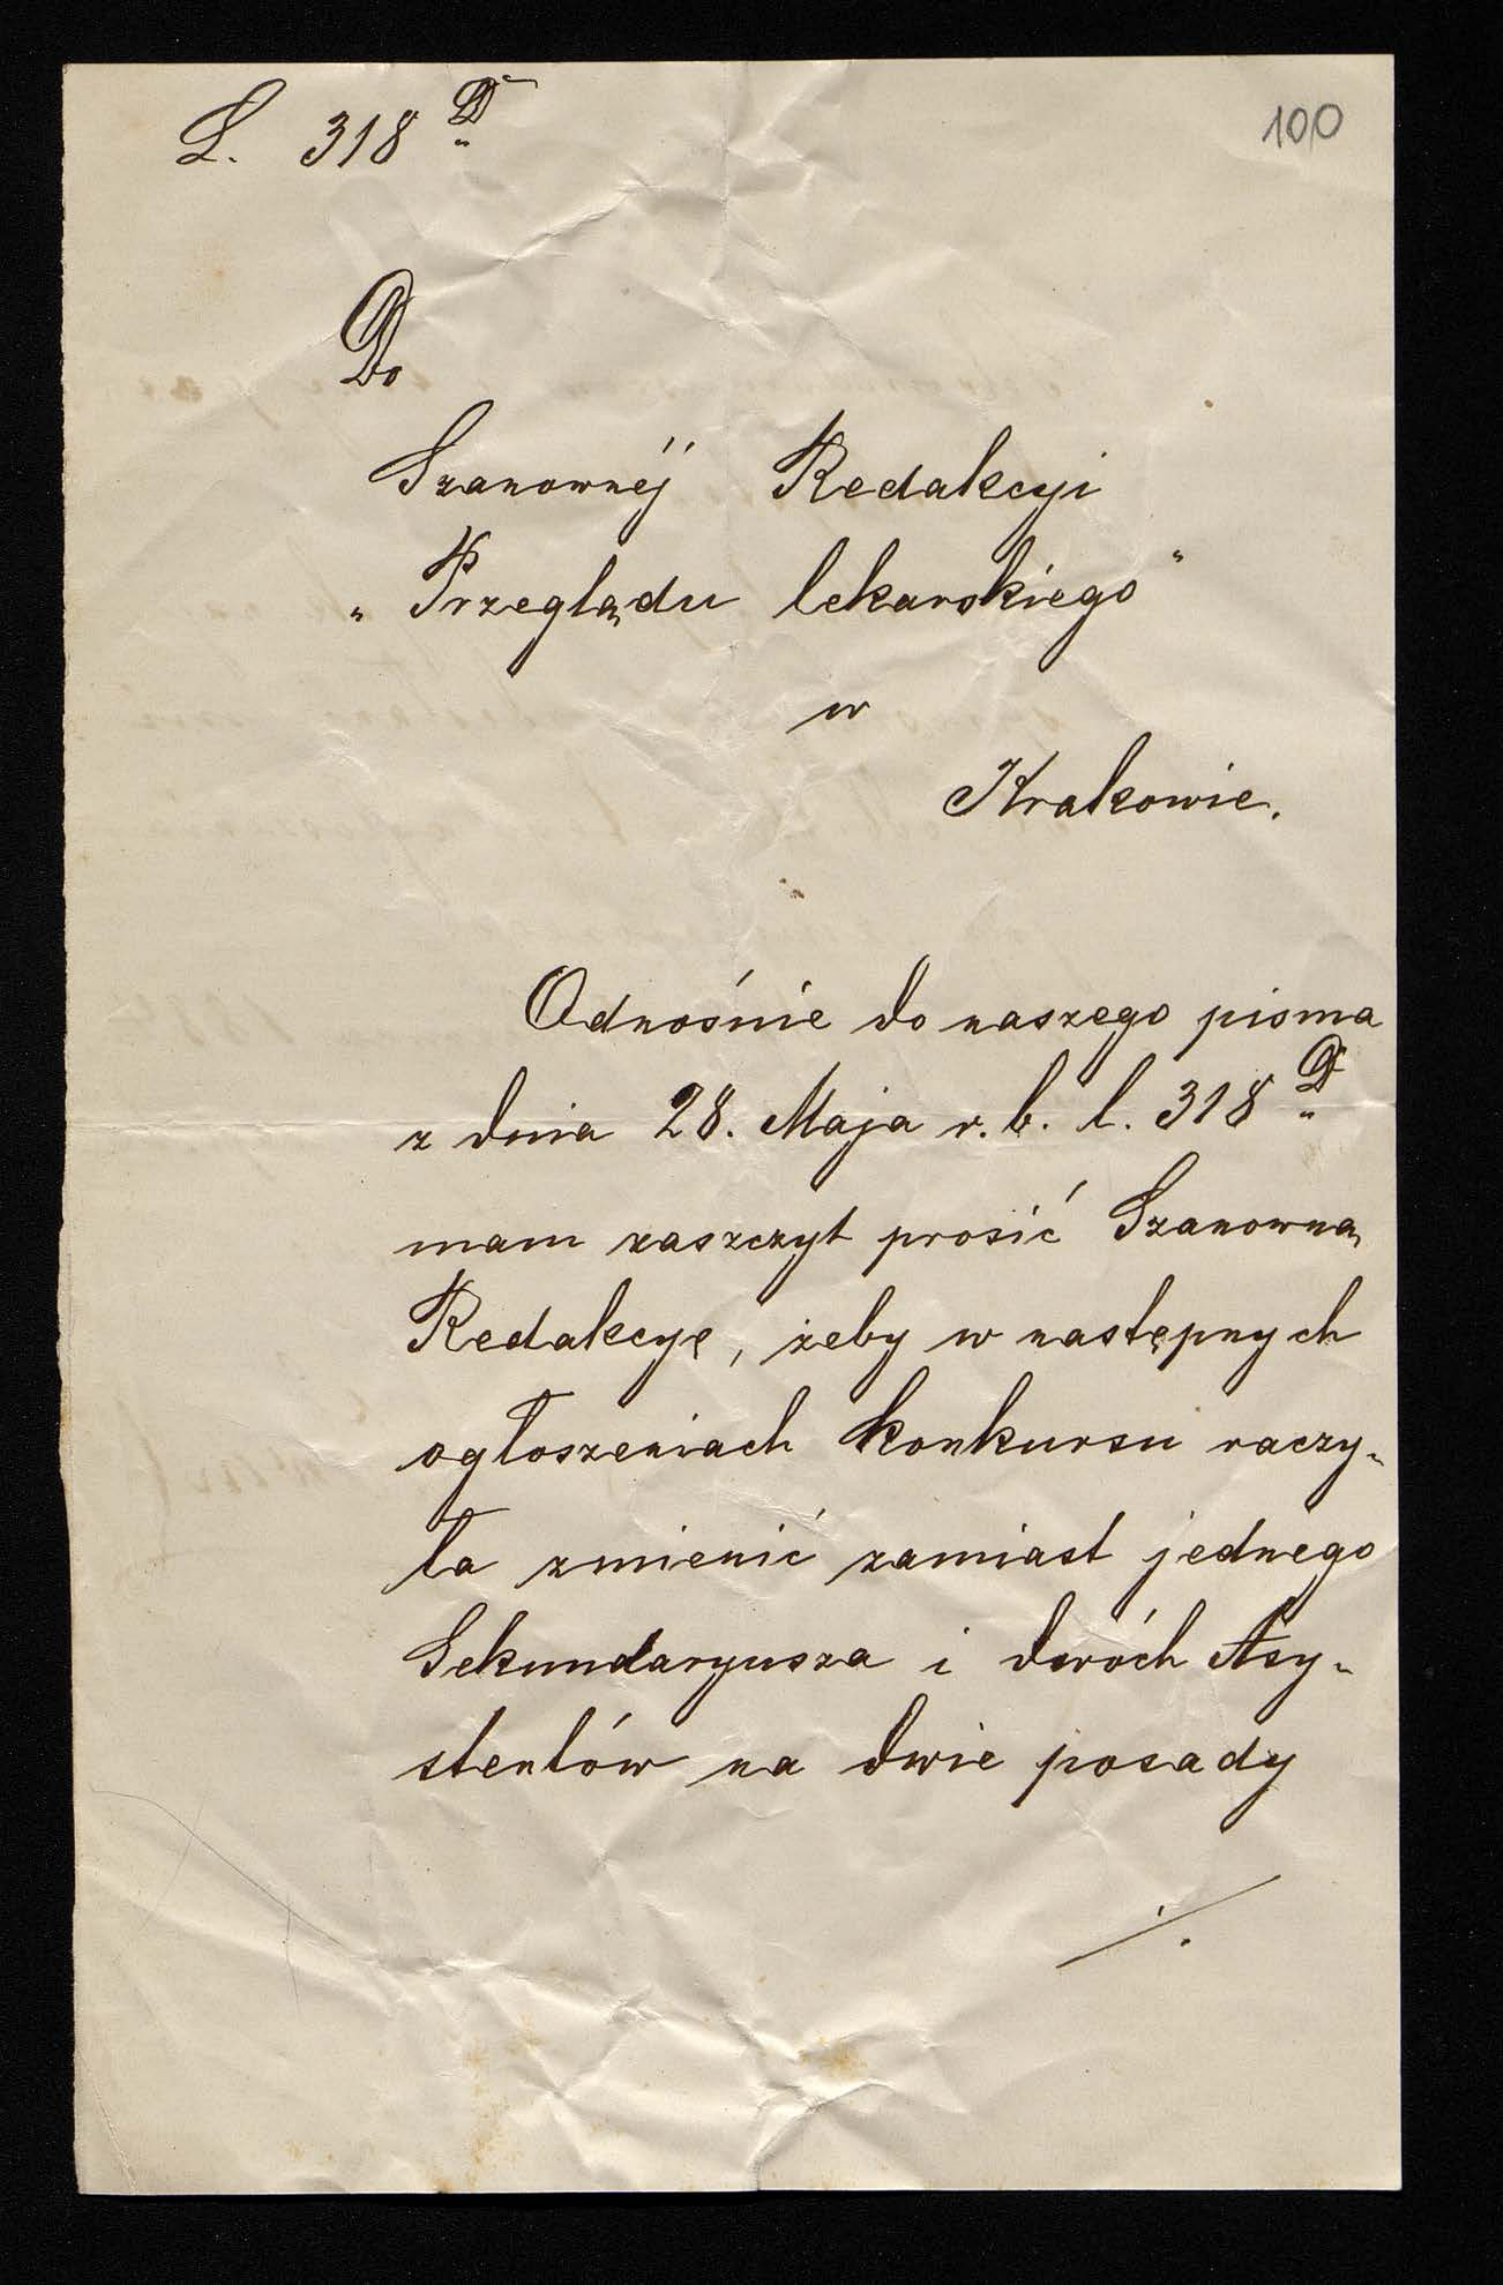 L. 318 D
100
Do
Szanownéj Redakcyi
„Przeglądu lekarskiego"
w
Krakowie.
Odnośnie do naszego pisma
z dnia 28. Maja r. b. l. 318 D
mam zaszczyt prosić Szanowną
Redakcyę, żeby w następnych
ogłoszeniach konkursu raczy-
ła zmienić zamiast jednego
Sekundaryusza i dwóch Asy-
stentów na dwie posady
./.